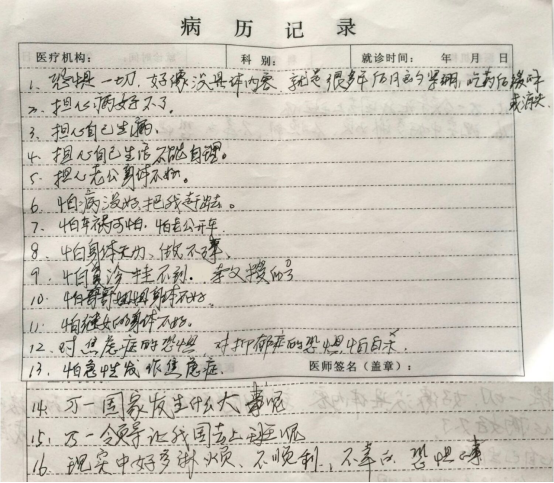 病历记录
医疗机构: 科别: 就诊时间: 年 月 日
1、恐惧一切,好像没具体内容 就是很 吃药后缓解
或消失
2、担心病好不了。
3、担心自己生病、
4、担心自己生活不能自理。
5、担心老公身体不好。
6、怕病没好把我赶出去。
7、怕车祸可怕,怕老公开车
8、怕身体无力、做不了事、
9、怕
10、怕哥哥姐姐身体不好、
11、怕 身体不好。
12、对焦虑症的恐惧,对抑郁症的恐惧,怕自杀
13、怕急性发作焦虑症、 医师签名(盖章):
14、万一国家发生什么大事呢
15、万一领导让我回去上班呢
16、现实中好多烦、不顺利、不幸的、恐惧的事